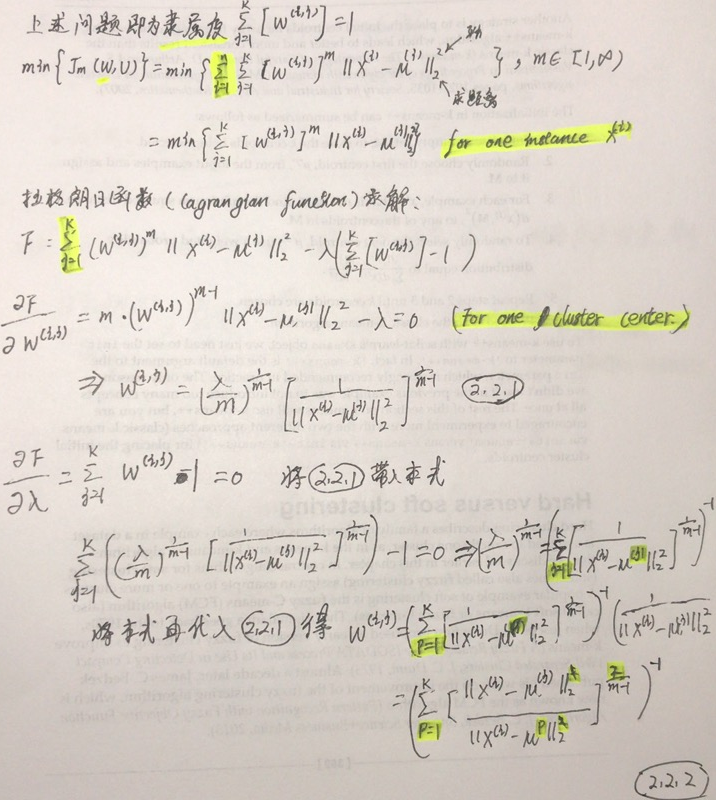 上述问题即为隶属度 \sum_{j=1}^{K} [w^{(i,j)}] = 1
min{J_m(W,U)} = min{ \sum_{i=1}^{n} \sum_{j=1}^{K} [w^{(i,j)}]^m ||x^{(i)} - μ^{(j)}||_2^2 }, m∈[1,∞)
= min{ \sum_{j=1}^{K} [w^{(i,j)}]^m ||x^{(i)} - μ^{(j)}||_2^2 } for one instance x^{(i)}
拉格朗日函数 (Lagrangian function) 求解:
F = \sum_{j=1}^{K} (w^{(i,j)})^m ||x^{(i)} - μ^{(j)}||_2^2 - λ( \sum_{j=1}^{K} [w^{(i,j)}] - 1 )
∂F/∂w^{(i,j)} = m·(w^{(i,j)})^{m-1} ||x^{(i)} - μ^{(j)}||_2^2 - λ = 0 (for one cluster center.)
⇒ w^{(i,j)} = (λ/m)^{1/(m-1)} [ 1/||x^{(i)} - μ^{(j)}||_2^2 ]^{1/(m-1)} (2,2,1)
∂F/∂λ = \sum_{j=1}^{K} w^{(i,j)} - 1 = 0 将(2,2,1)带入本式
\sum_{j=1}^{K} ( (λ/m)^{1/(m-1)} [ 1/||x^{(i)} - μ^{(j)}||_2^2 ]^{1/(m-1)} ) - 1 = 0 ⇒ (λ/m)^{1/(m-1)} = ( \sum_{j=1}^{K} [ 1/||x^{(i)} - μ^{(j)}||_2^2 ]^{1/(m-1)} )^{-1}
将本式再代入(2,2,1)得 w^{(i,j)} = ( \sum_{p=1}^{K} [ 1/||x^{(i)} - μ^{(p)}||_2^2 ]^{1/(m-1)} )^{-1} ( 1/||x^{(i)} - μ^{(j)}||_2^2
= ( \sum_{p=1}^{K} [ ||x^{(i)} - μ^{(j)}||_2 / ||x^{(i)} - μ^{p}||_2 ]^{2/(m-1)} )^{-1}
(2,2,2)